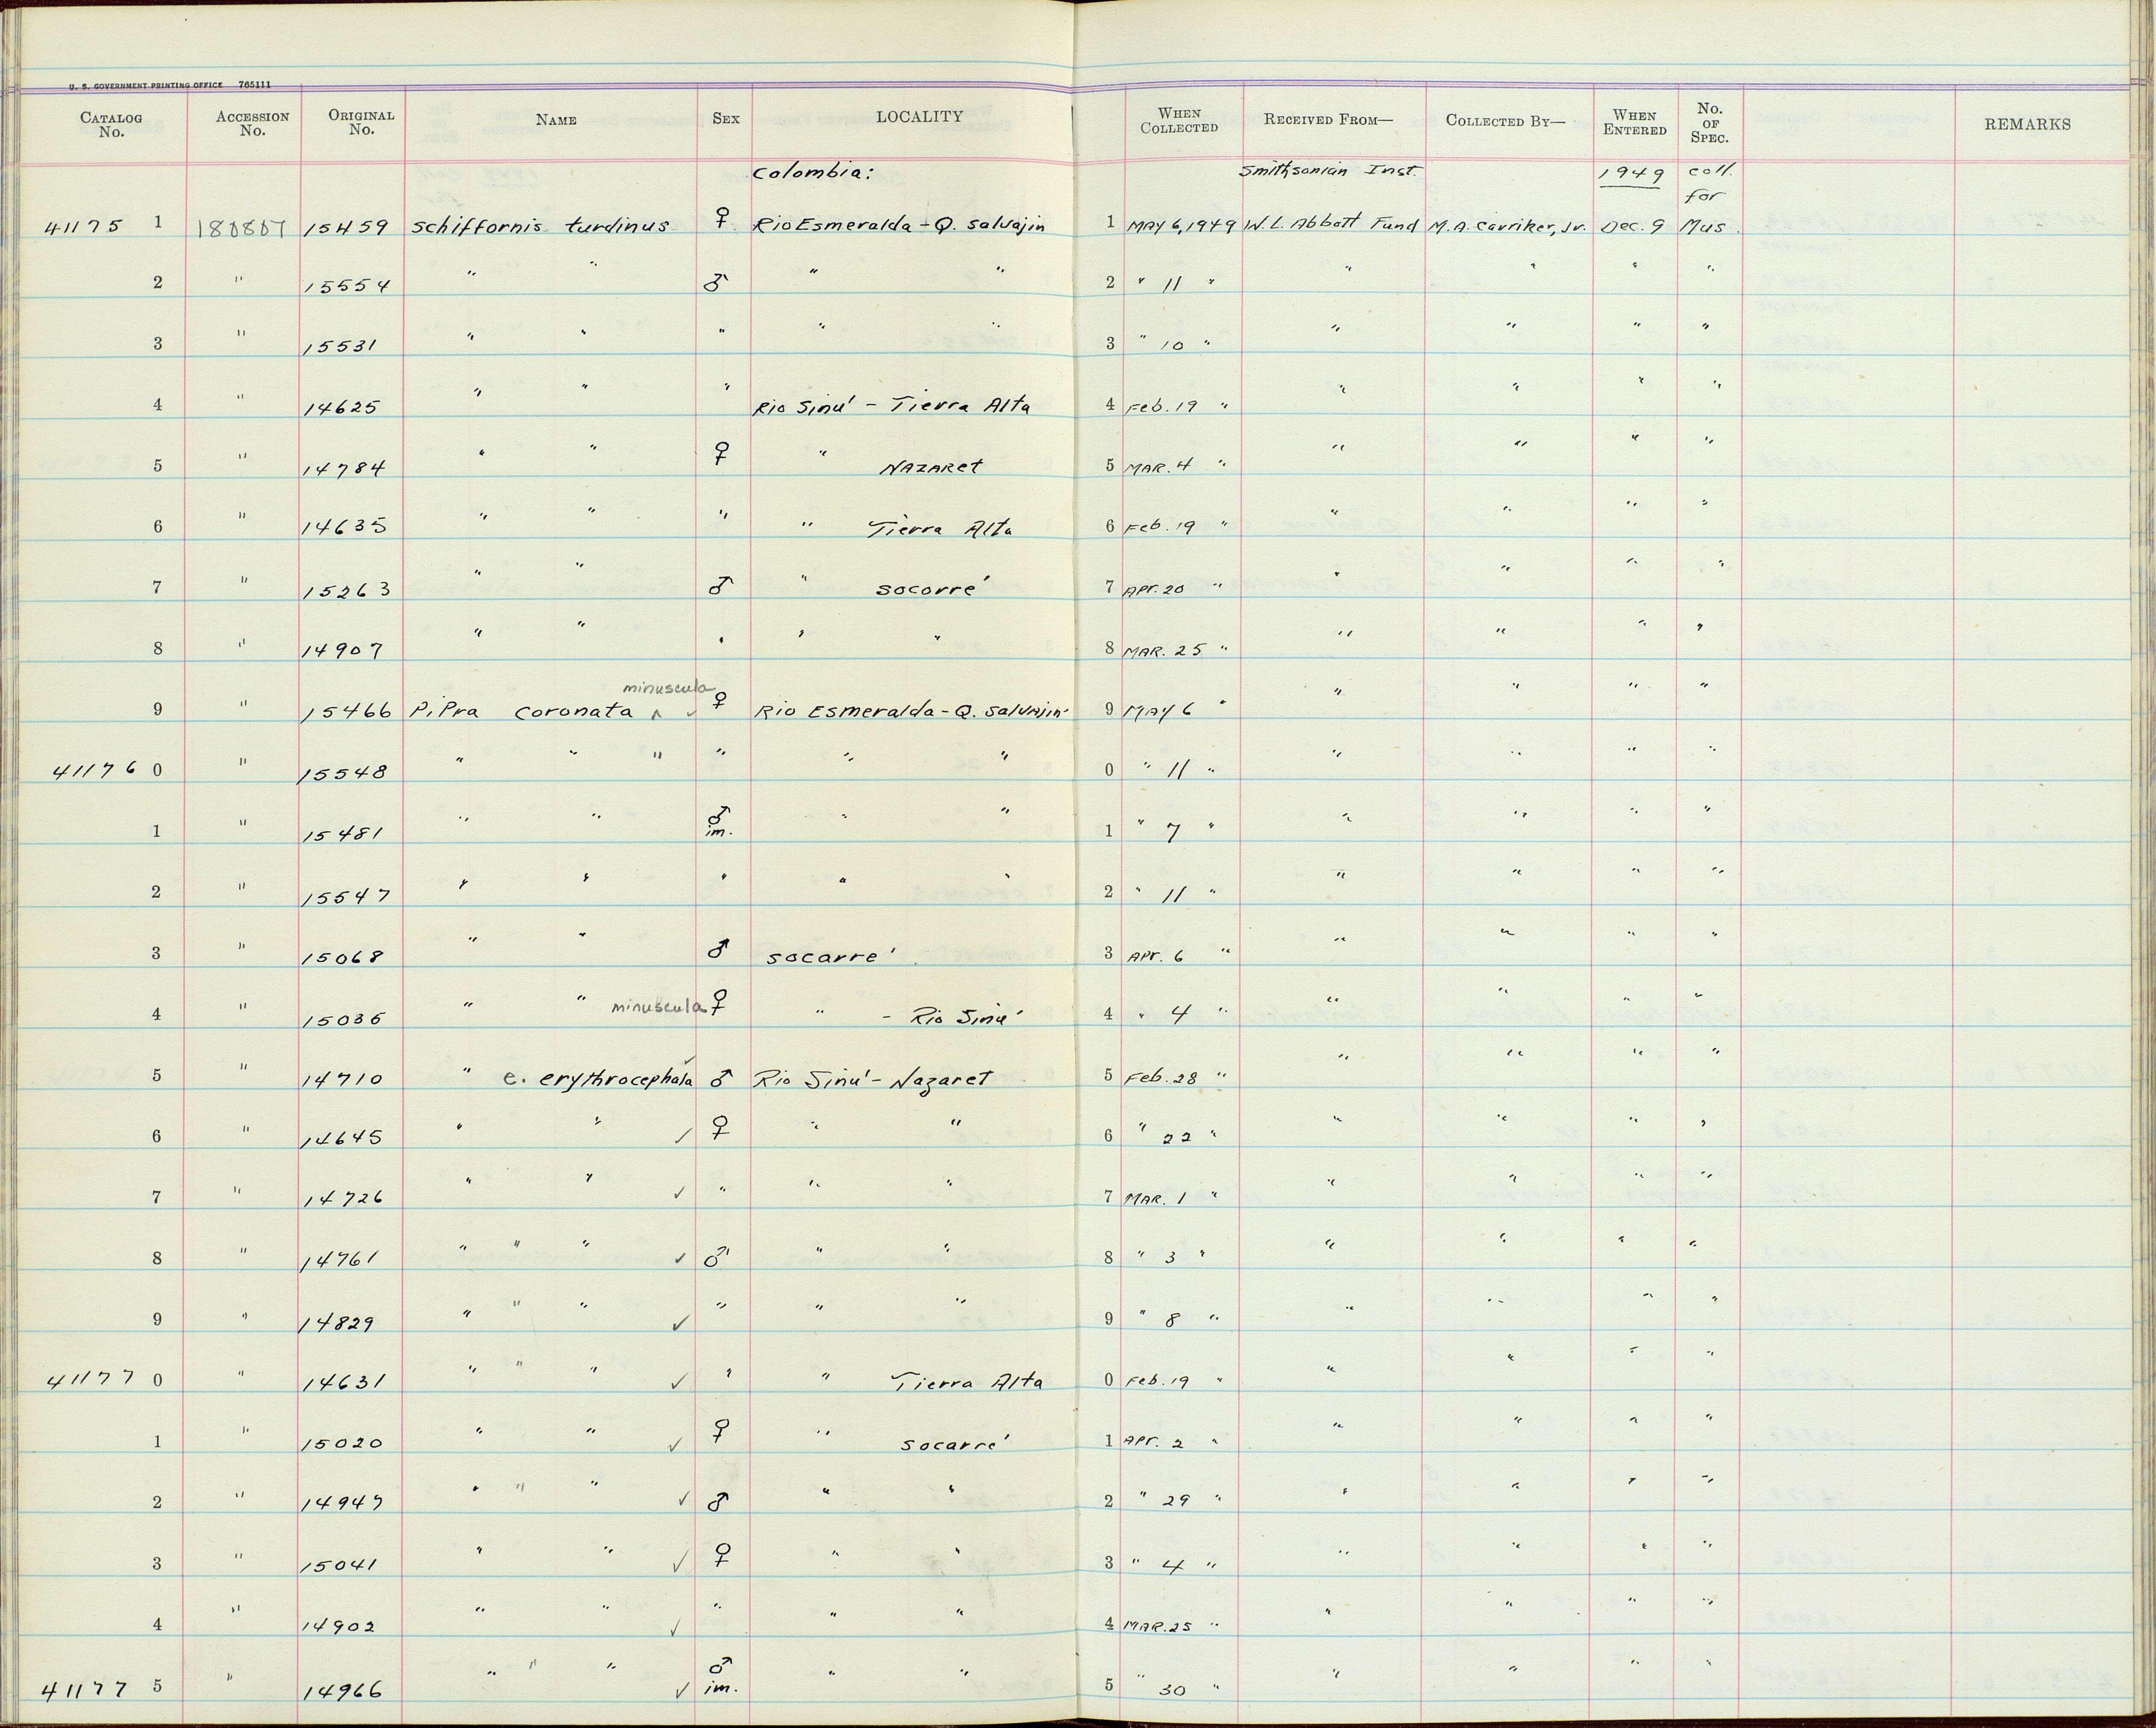 U. S. GOVERNMENT PRINTING OFFICE 765111
CATALOG No. ACCESSION No. ORIGINAL No. NAME SEX LOCALITY WHEN COLLECTED RECEIVED FROM— COLLECTED BY— WHEN ENTERED No. OF SPEC. REMARKS
Colombia: Smithsonian Inst. 1949 coll. for
41175 1 180807 15459 Schiffornis turdinus ♀ Rio Esmeralda - Q. Salvajin 1 MAY 6, 1949 W. L. Abbott Fund M. A. Carriker, Jr. Dec. 9 Mus.
2 " 15554 " " ♂ " " 2 " 11 " " " " "
3 " 15531 " " " " " 3 " 10 " " " " "
4 " 14625 " " " Rio Sinú - Tierra Alta 4 Feb. 19 " " " " "
5 " 14784 " " ♀ " NAZARET 5 MAR. 4 " " " " "
6 " 14635 " " " " Tierra Alta 6 Feb. 19 " " " " "
7 " 15263 " " ♂ " Socorré 7 APr. 20 " " " " "
8 " 14907 " " " " " 8 MAR. 25 " " " " "
minuscula
9 " 15466 PiPra coronata ^ ✓ ♀ Rio Esmeralda - Q. Salvajin 9 MAY 6 " " " " "
41176 0 " 15548 " " " " " " 0 " 11 " " " " "
1 " 15481 " " ♂ im. " " 1 " 7 " " " " "
2 " 15547 " " " " " 2 " 11 " " " " "
3 " 15068 " " ♂ Socarré 3 APr. 6 " " " " "
4 " 15036 " " minuscula ♀ " - Rio Sinú 4 " 4 " " " " "
5 " 14710 " e. erythrocephala ✓ ♂ Rio Sinú - Nazaret 5 Feb. 28 " " " " "
6 " 14645 " " ✓ ♀ " " 6 " 22 " " " " "
7 " 14726 " " ✓ " " " 7 MAR. 1 " " " " "
8 " 14761 " " " ✓ ♂ " " 8 " 3 " " " " "
9 " 14829 " " " ✓ " " " 9 " 8 " " " " "
41177 0 " 14631 " " " ✓ " " Tierra Alta 0 Feb. 19 " " " " "
1 " 15020 " " ✓ ♀ " Socarré 1 APr. 2 " " " " "
2 " 14947 " " " ✓ ♂ " " 2 " 29 " " " " "
3 " 15041 " " ✓ ♀ " " 3 " 4 " " " " "
4 " 14902 " " ✓ " " " 4 MAR. 25 " " " " "
41177 5 " 14966 " " " ✓ ♂ im. " " 5 " 30 " " " " "